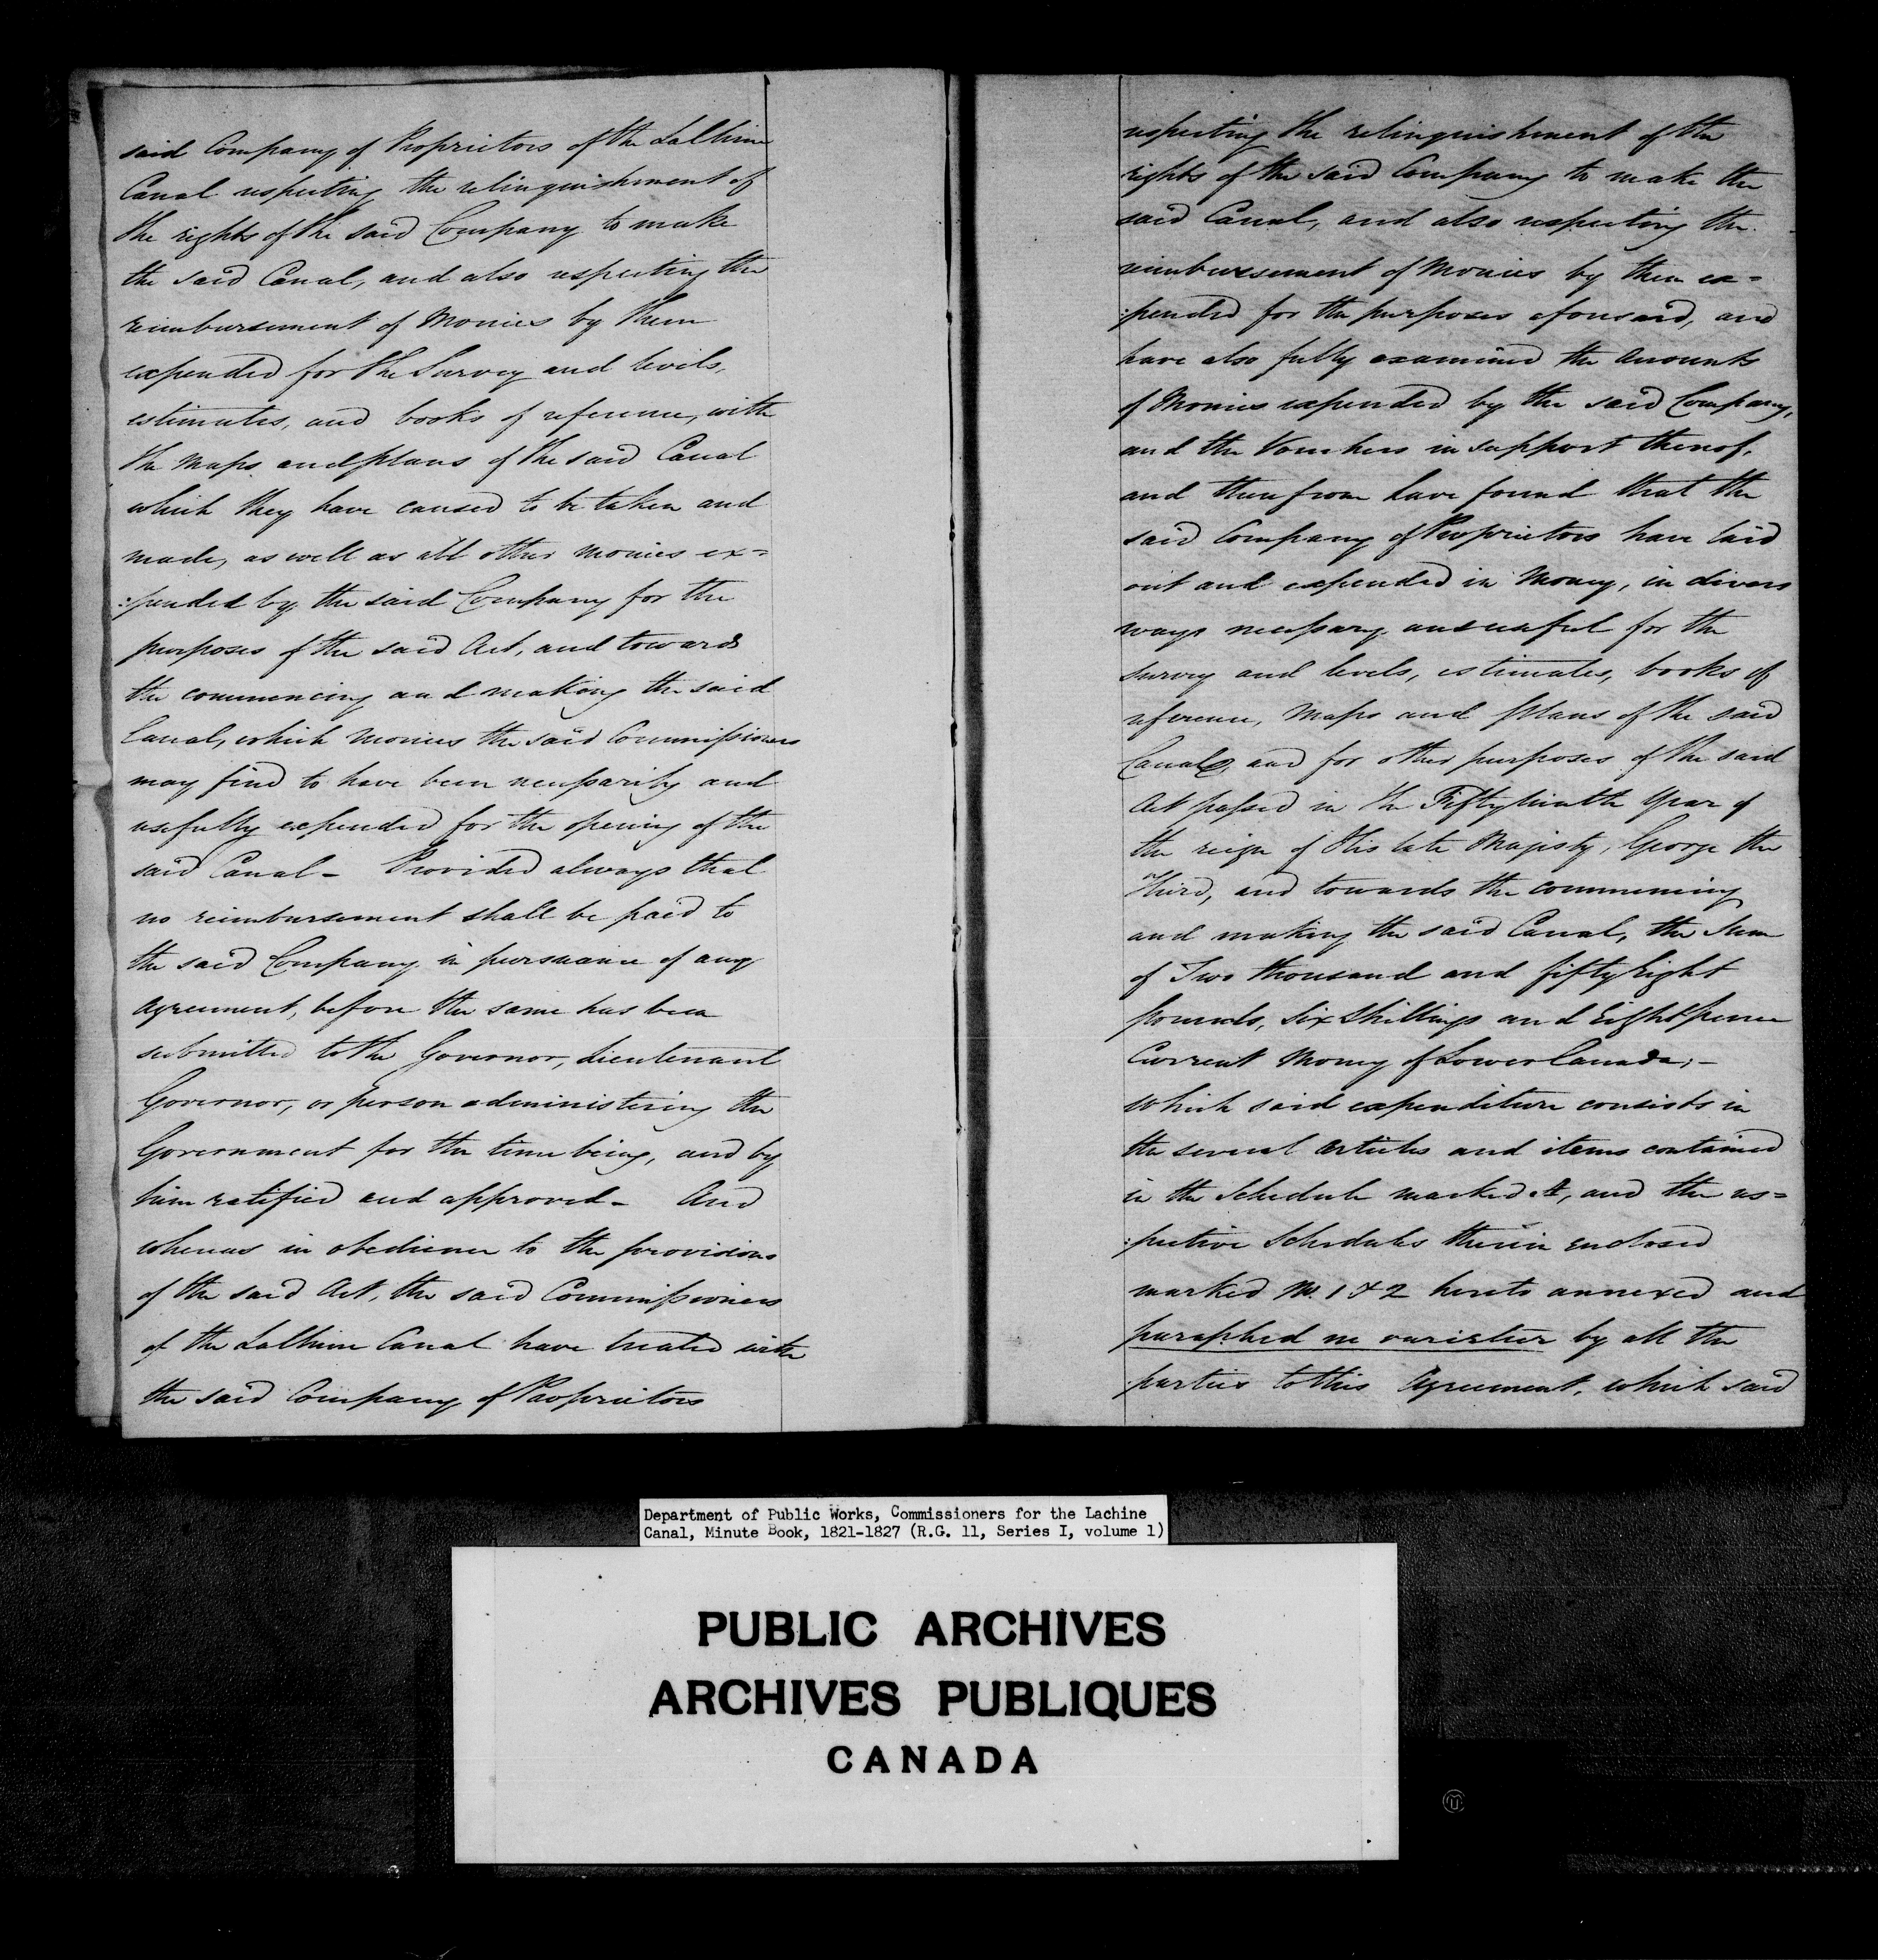 said Company of Proprietors of the LaChine
Canal respecting the relinquishment of
the rights of the said Company to make
the said Canal, and also respecting the
reimbursement of Monies by them
expended for the Survey and levels,
estimates, and books of reference, with
the Maps and plans of the said Canal
which they have caused to be taken and
made, as well as all other monies ex=
:pended by the said Company for the
purposes of the said Act, and towards
the commencing and making the said
Canal, which Monies the said Commissioners
may find to have been necessarily and
usefully expended for the opening of the
said Canal - Provided always that
no reimbursement shall be paid to
the said Company in pursuance of any
agreement, before the same has been
submitted to the Governor, Lieutenant
Governor, or person administering the
Government for the time being, and by
him ratified and approved - And
whereas in obedience to the provisions
of the said Act, the said Commissioners
of the LaChine Canal have treated with
the said Company of Proprietors
respecting the relinquishment of the
rights of the said Company to make the
said Canal, and also respecting the
reimbursement of Monies by them ex=
:pended for the purposes aforesaid, and
have also fully examined the Amounts
of Monies expended by the said Company,
and the Vouchers in support thereof,
and therefrom have found that the
said Company of Proprietors have laid
out and expended in Money, in divers
ways necessary and useful for the
survey and levels, estimates, books of
reference, Maps and plans of the said
Canal, and for other purposes of the said
Act passed in the Fifty ninth Year of
the reign of His late Majesty, George the
Third, and towards the commencing
and making the said Canal, the Sum
of Two thousand and fifty Eight
pounds, Six Shillings and Eight pence
Current Money of Lower Canada; -
which said expenditure consists in
the several articles and items contained
in the Schedule marked A, and the res=
:pective Schedules therein enclosed
marked No. 1 & 2 hereto annexed and
paraphed ne varietur by all the
parties to this Agreement, which said
Department of Public Works, Commissioners for the Lachine
Canal, Minute Book, 1821-1827 (R.G. 11, Series I, volume 1)
PUBLIC ARCHIVES
ARCHIVES PUBLIQUES
CANADA